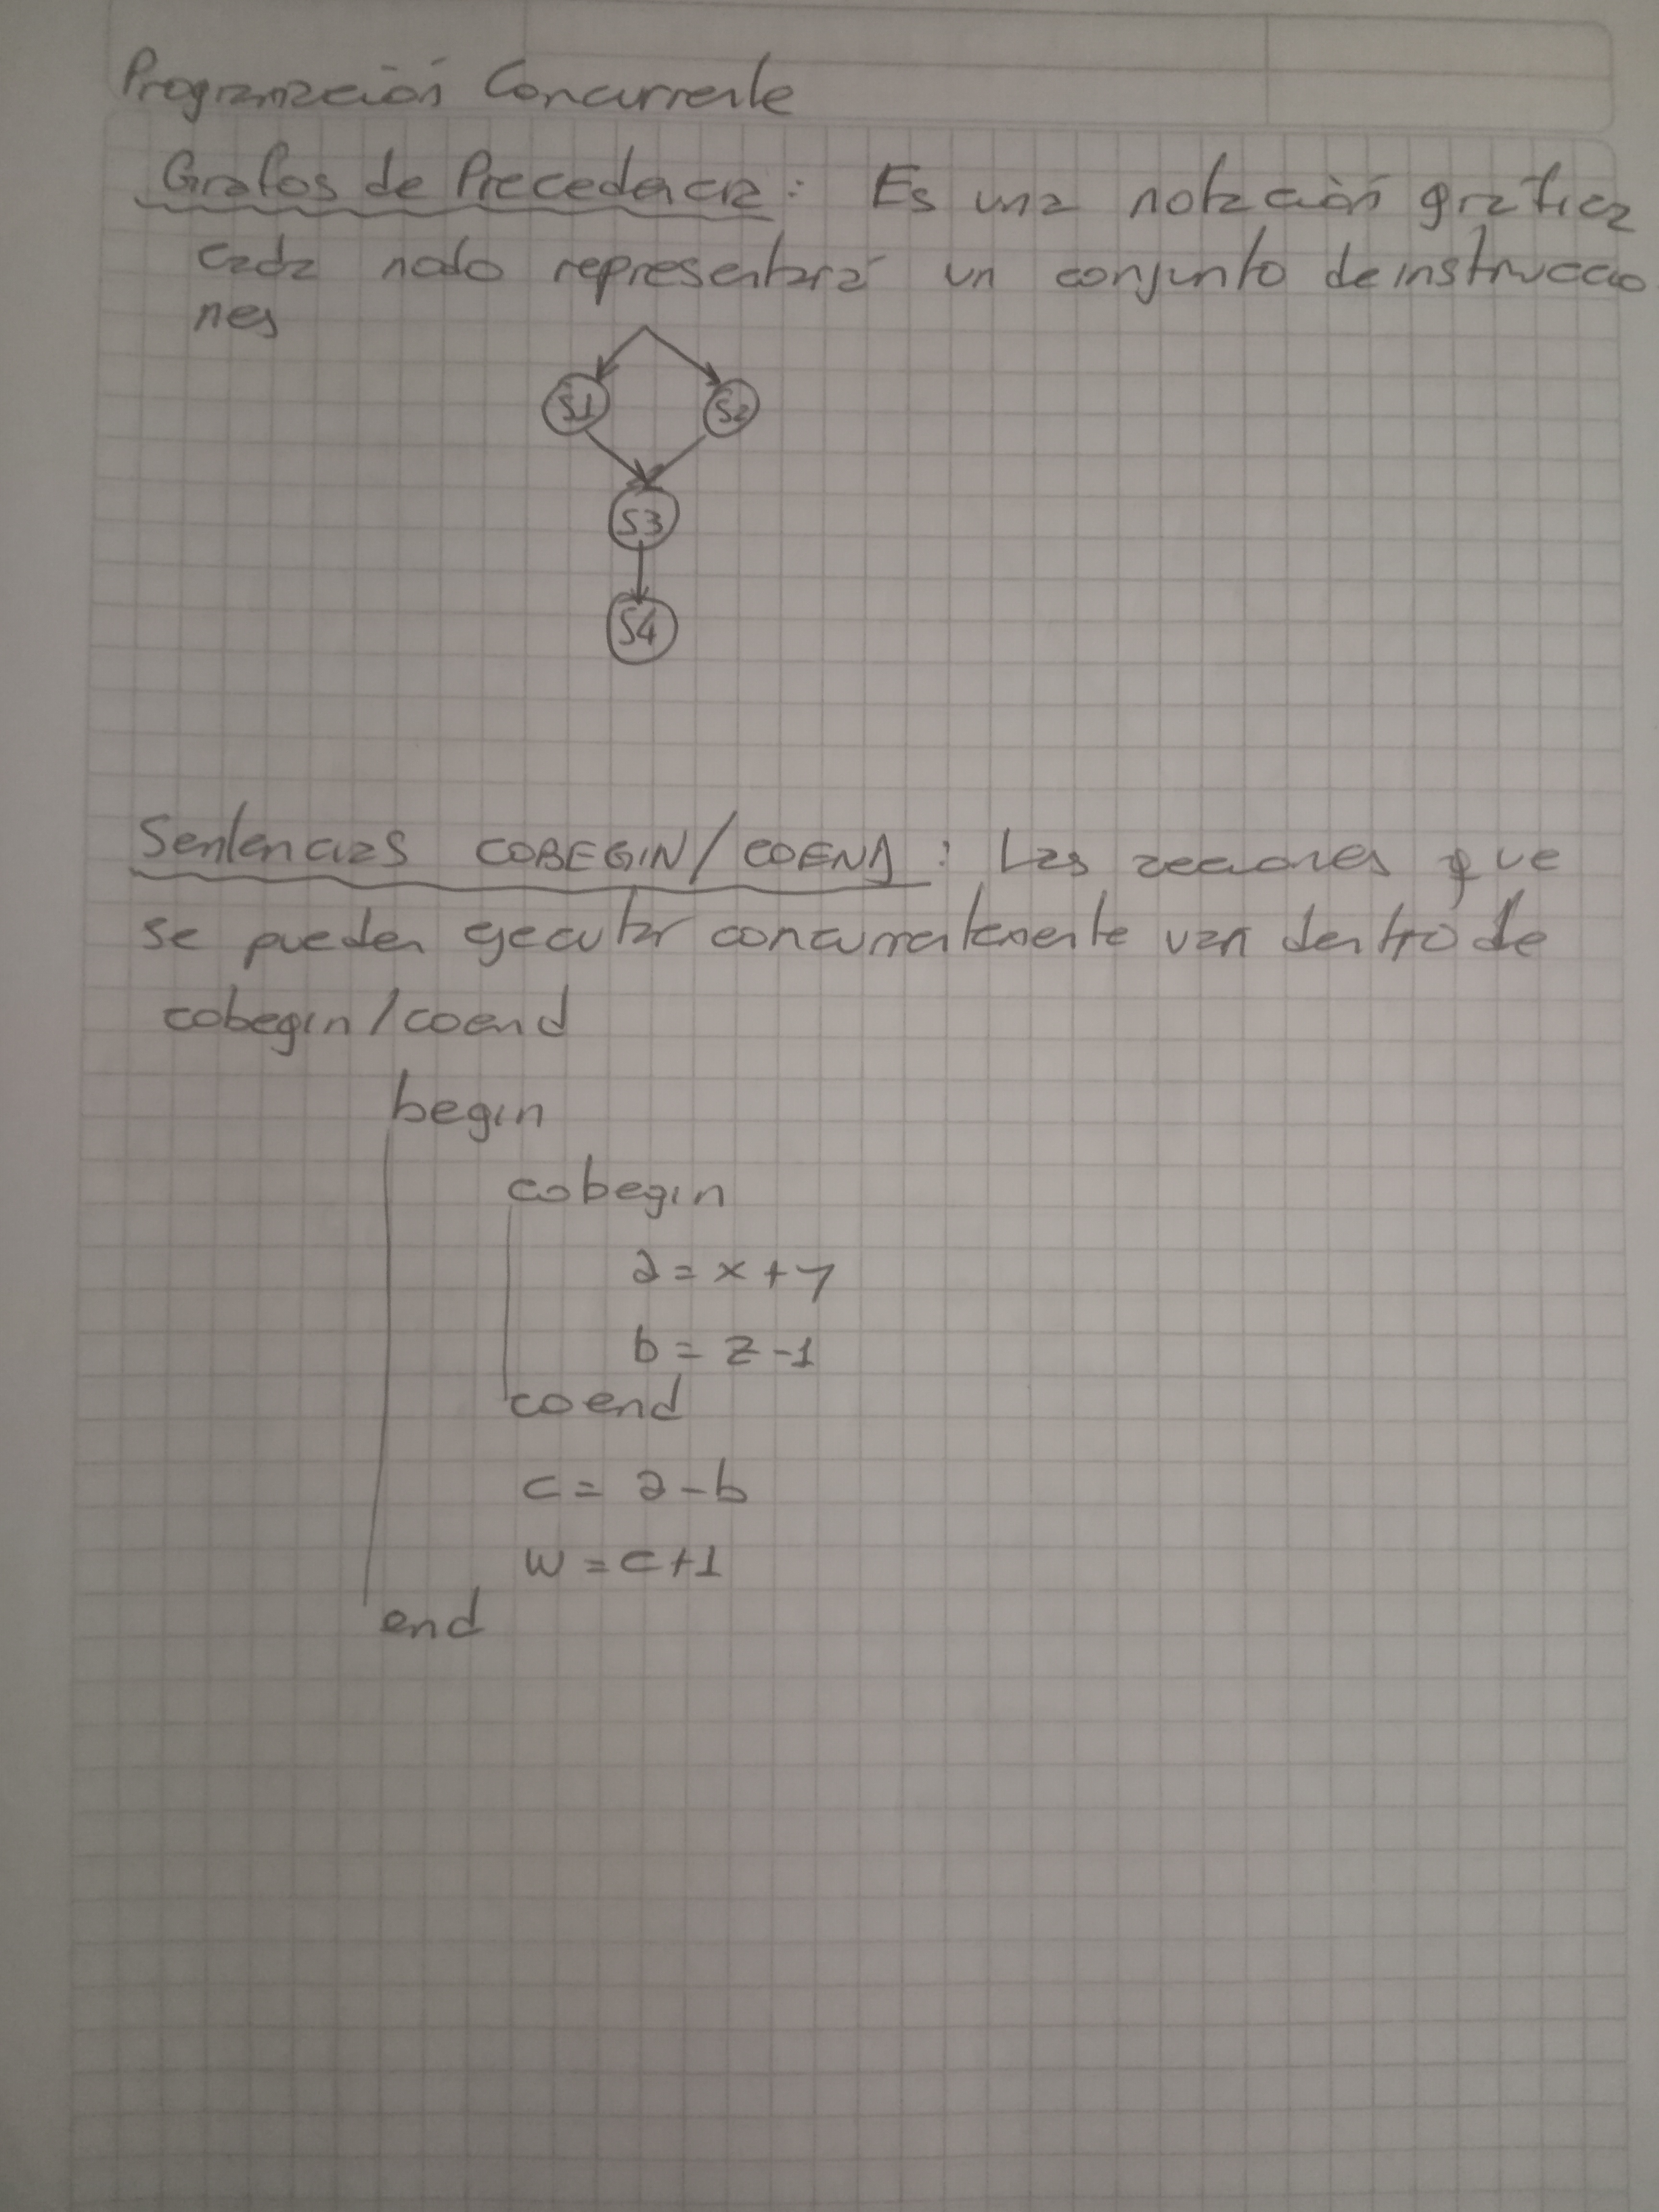 Programación Concurrente
Grafos de Precedencia: Es una notación gráfica
cada nodo representará un conjunto de instruccio
nes
S1 S2
S3
S4
Sentencias COBEGIN/COEND: Las acciones que
se pueden ejecutar concurrentemente van dentro de
cobegin/coend
begin
cobegin
a = x + y
b = z - 1
coend
c = a - b
w = c + 1
end